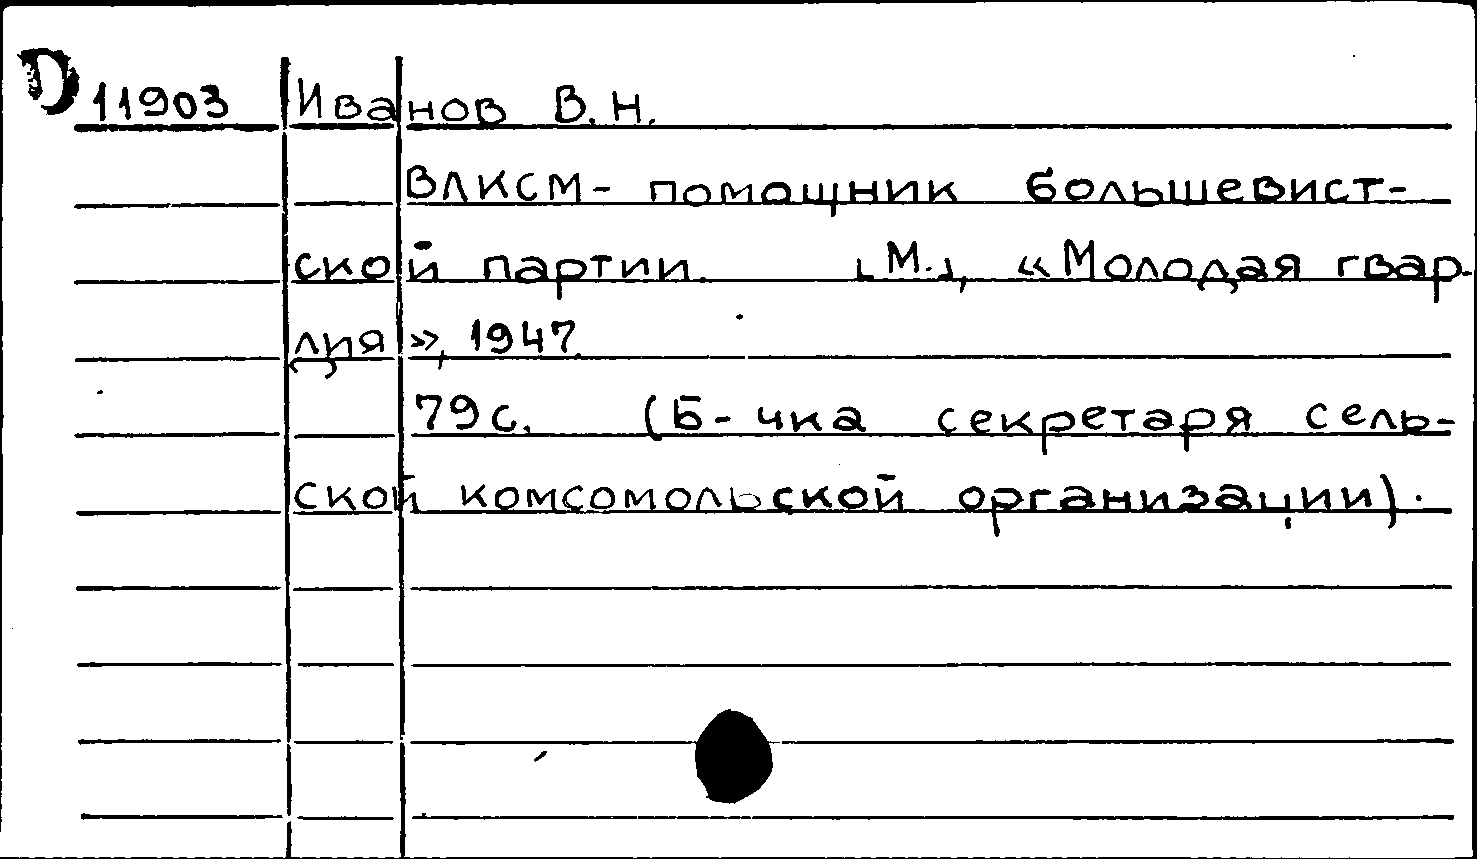 D 11903 Иванов В. Н.
ВЛКСМ - помощник большевист-
ской партии. [М.], «Молодая гвар-
дия», 1947.
79 с. (Б-чка секретаря сель-
ской комсомольской организации).